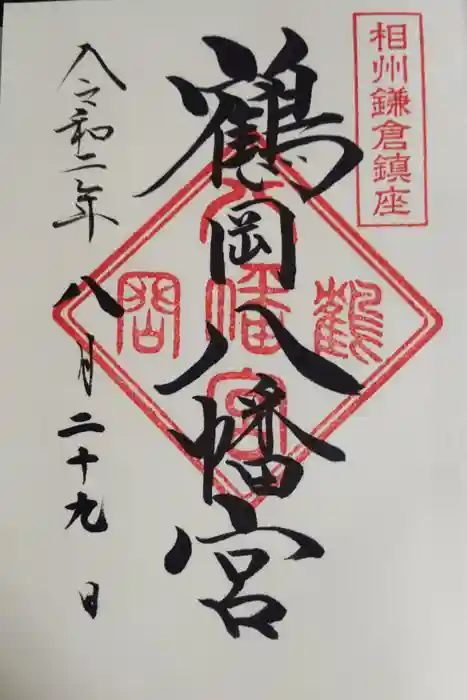 相州鎌倉鎮座
鶴岡八幡宮
鶴
八幡宮
岡
令和二年八月二十九日